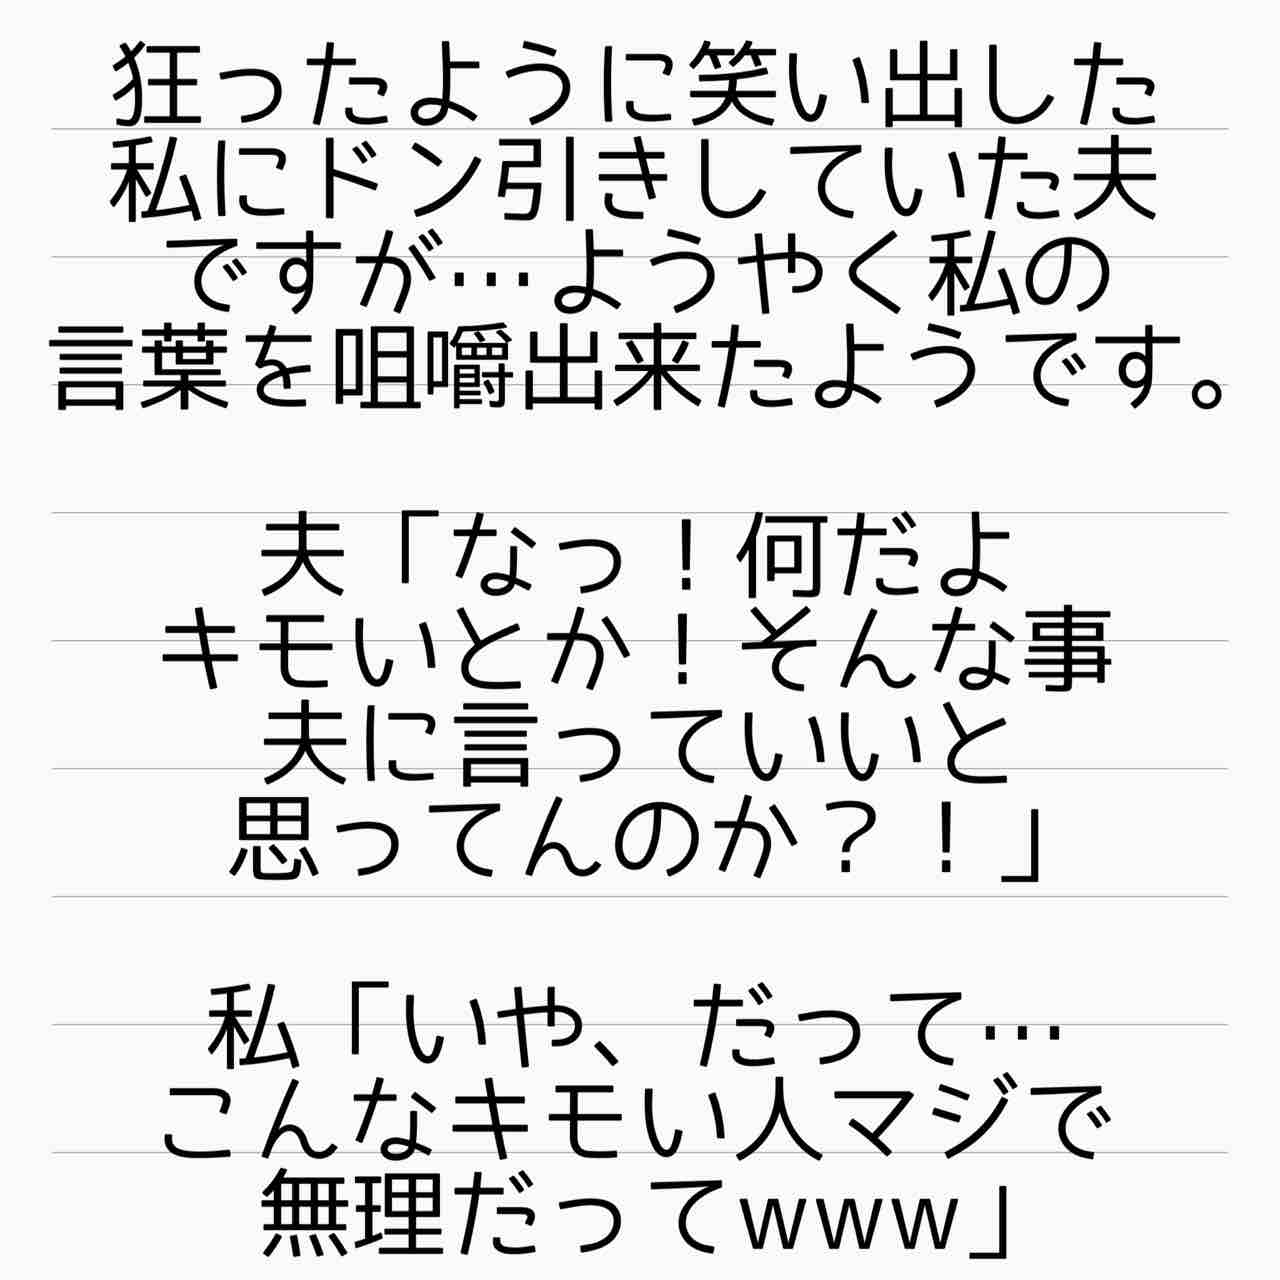 狂ったように笑い出した
私にドン引きしていた夫
ですが…ようやく私の
言葉を咀嚼出来たようです。
夫「なっ！何だよ
キモいとか！そんな事
夫に言っていいと
思ってんのか？！」
私「いや、だって…
こんなキモい人マジで
無理だってwww」